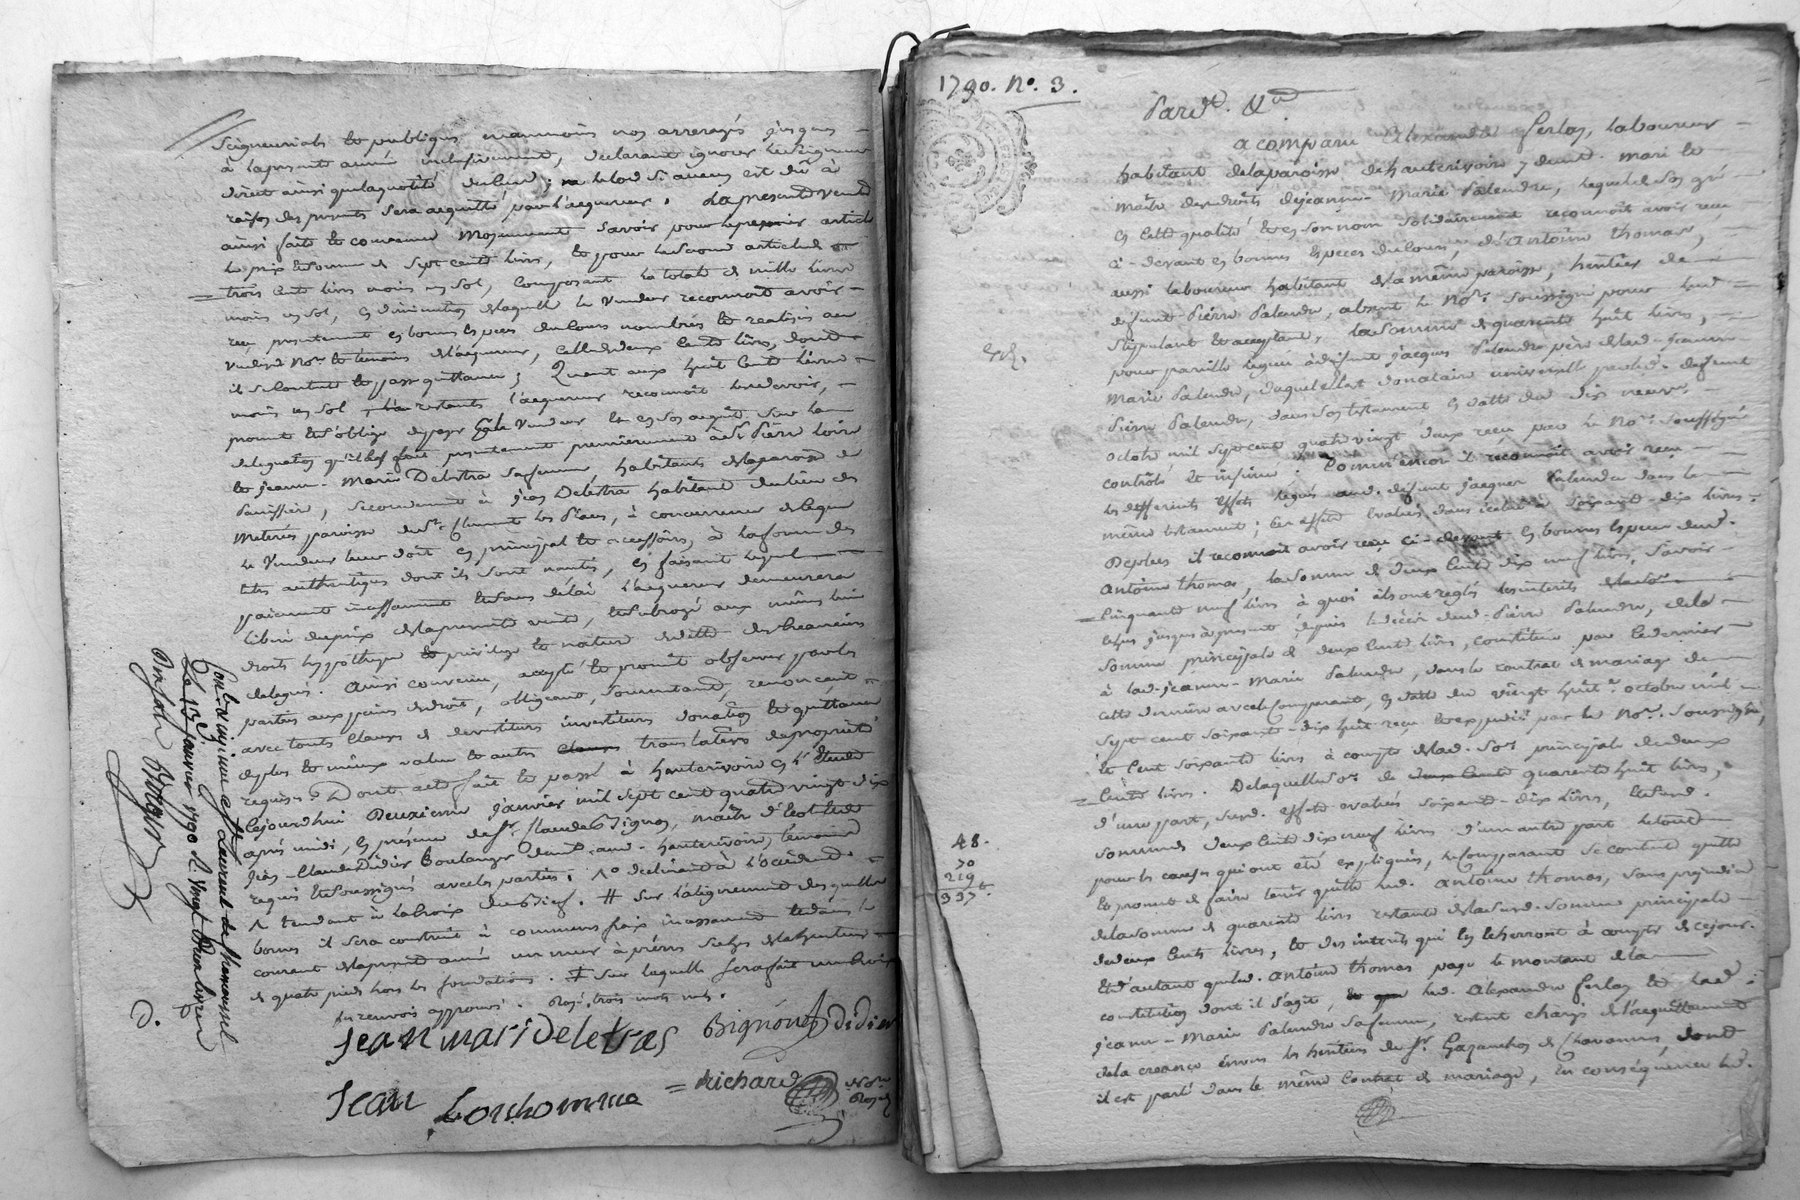 Seigneurials et publiques, neanmoins nos arreragés jusques
à la presente année inclusivement, declarant ignorer le seigneur
direct ainsi que la quotité du cens ; le lod si aucun est dû à
raison des presentes sera acquitté par l'acquereur. La presente vente
ainsi faite et convenue moyennant savoir pour le premier article
le prix et somme de sept cents livres, et pour le second article de
trois cents livres moins un sol, composant la totale de mille livres
moins un sol, en diminution de laquelle le vendeur reconnoit avoir
reçu presentement en bonnes especes du cours nombrés et realisés au
vû dud. Nore. et temoins de l'acquereur, celle de deux cents livres, dont
il se contente et passe quittance ; Quant aux huit cents livres
moins un sol restants l'acquereur reconnoit les devoir,
promet et s'oblige de payer le vendeur et en son acquit sur la
delegation qu'il lui fait presentement premierement à Sr. Pierre Loire
et Jeanne-Marie Delestra sa femme, habitants de la paroisse de
Panissiere, secondement à Jean Delestra habitant du lieu des
Meteries paroisse de St. Clement les Places, à concurrence de ce que
le vendeur leur doit en principal et accessoires, à la forme des
titres authentiques dont ils sont nantis, en faisant lequel
paiement incessamment et sans délai l'acquereur demeurera
liberé du prix de la presente vente, et subrogé aux mêmes lieu
droits hypotheque privilege et nature de dette des creanciers
delegués. Ainsi convenu, accepté et promit observer par les
parties aux peines de droit, obligeant, soumettant, renonçant
avec toutes clauses de devestiture investiture donation et quittance
de plus et mieux value et autres translatives de propriété
requises. Dont acte fait et passé à hauterivoire en l'Etude
cejourdhui Deuxieme janvier mil sept cent quatre vingt dix
après midi, en présence de Sr. Claude Bignon, maître d'Ecole et de
Jean-Claude Didier Boulanger demt. aud. hauterivoire, temoins
requis et soussignés avec les parties.
tendant à la Croix du Fief. # sur l'alignement desquelles
bornes il sera construit à communs fraix incessamment et dans le
courant de la presente année un mur à pierres seches de la hauteur
de quatre pieds hors les fondations. # sur laquelle sera fait une Croix
en renvois approuvé. Rayé trois mots nuls.
Jean mari Deletras Bignon Didier
Jean Bonhomme = Richard Nore Royal
Conlé. & insinué à St Laurent de Chamousset
Le 13 janvier 1790 R. Vingt
D.
1790. No. 3.
Pardt. Nre.
a comparu Alexandre ferlay, laboureur
habitant de la paroisse de hauterivoire y demt. mari et
maitre des droits de jeanne-Marie Palandre, lequel de son gré
en cette qualité et en son nom solidairement reconnoit avoir reçu
ci-devant en bonnes especes du cours, d'Antoine thomas,
aussi laboureur habitant de la même paroisse, heritier de
defunt Pierre Palandre, absent le Nore. soussigné pour lui
stipulant et acceptant, la somme de quarante huit livres,
pour pareille leguée à defunt jacques Palandre père de lad. jeanne-
Marie Palandre, duquel elle est donataire universelle par led. defunt
Pierre Palandre, dans son testament en datte du dix neuf
octobre mil sept cent quatre vingt deux reçu par le Nore. soussigné
controlé et insinué. Comm'encor il reconnoit avoir reçu
les differents effets legués aud. defunt jacques Palandre dans le
même testament ; ces effets evalués dans icelui à soixante-dix livres
De plus il reconnoit avoir reçu ci-devant en bonnes especes dud.
Antoine thomas, la somme de deux cents dix neuf livres, savoir
cinquante neuf livres à quoi ils ont reglés les interets
echus jusques à present depuis le décès dud. Pierre Palandre, de la
somme principale de deux cents livres, constituée par ce dernier
à lad. jeanne-Marie Palandre, dans le contrat de mariage de
cette derniere avec le comparant, en datte du vingt huit octobre mil
sept cent soixante-dix huit reçu et expedié par le Nore. soussigné,
et cent soixante livres à compte de lad. some principale de deux
cents livres. Desquelles somes de quarante huit livres,
d'une part, susd. effets evalués soixante-dix livres, et susd.
somme de deux cents dix neuf livres d'une autre part le tout
pour les causes qui ont été expliquées, le comparant se contente quitte
et promet de faire tenir quitte led. Antoine thomas, sans prejudice
de la somme de quarante livres restante de la susd. somme principale
de deux cents livres, et des interets qui en echerront à compter de ce jour.
Et d'autant que led. Antoine thomas paye le montant de la
constitution dont il s'agit, led. Alexandre ferlay et lad.
jeanne-Marie Palandre sa femme, restent chargés de l'acquittement
de la creance envers les heritiers de Sr. Gazanchon de Chavannes, dont
il est parlé dans le même Contrat de mariage, en conséquence led.
48.
70
219
337 #.